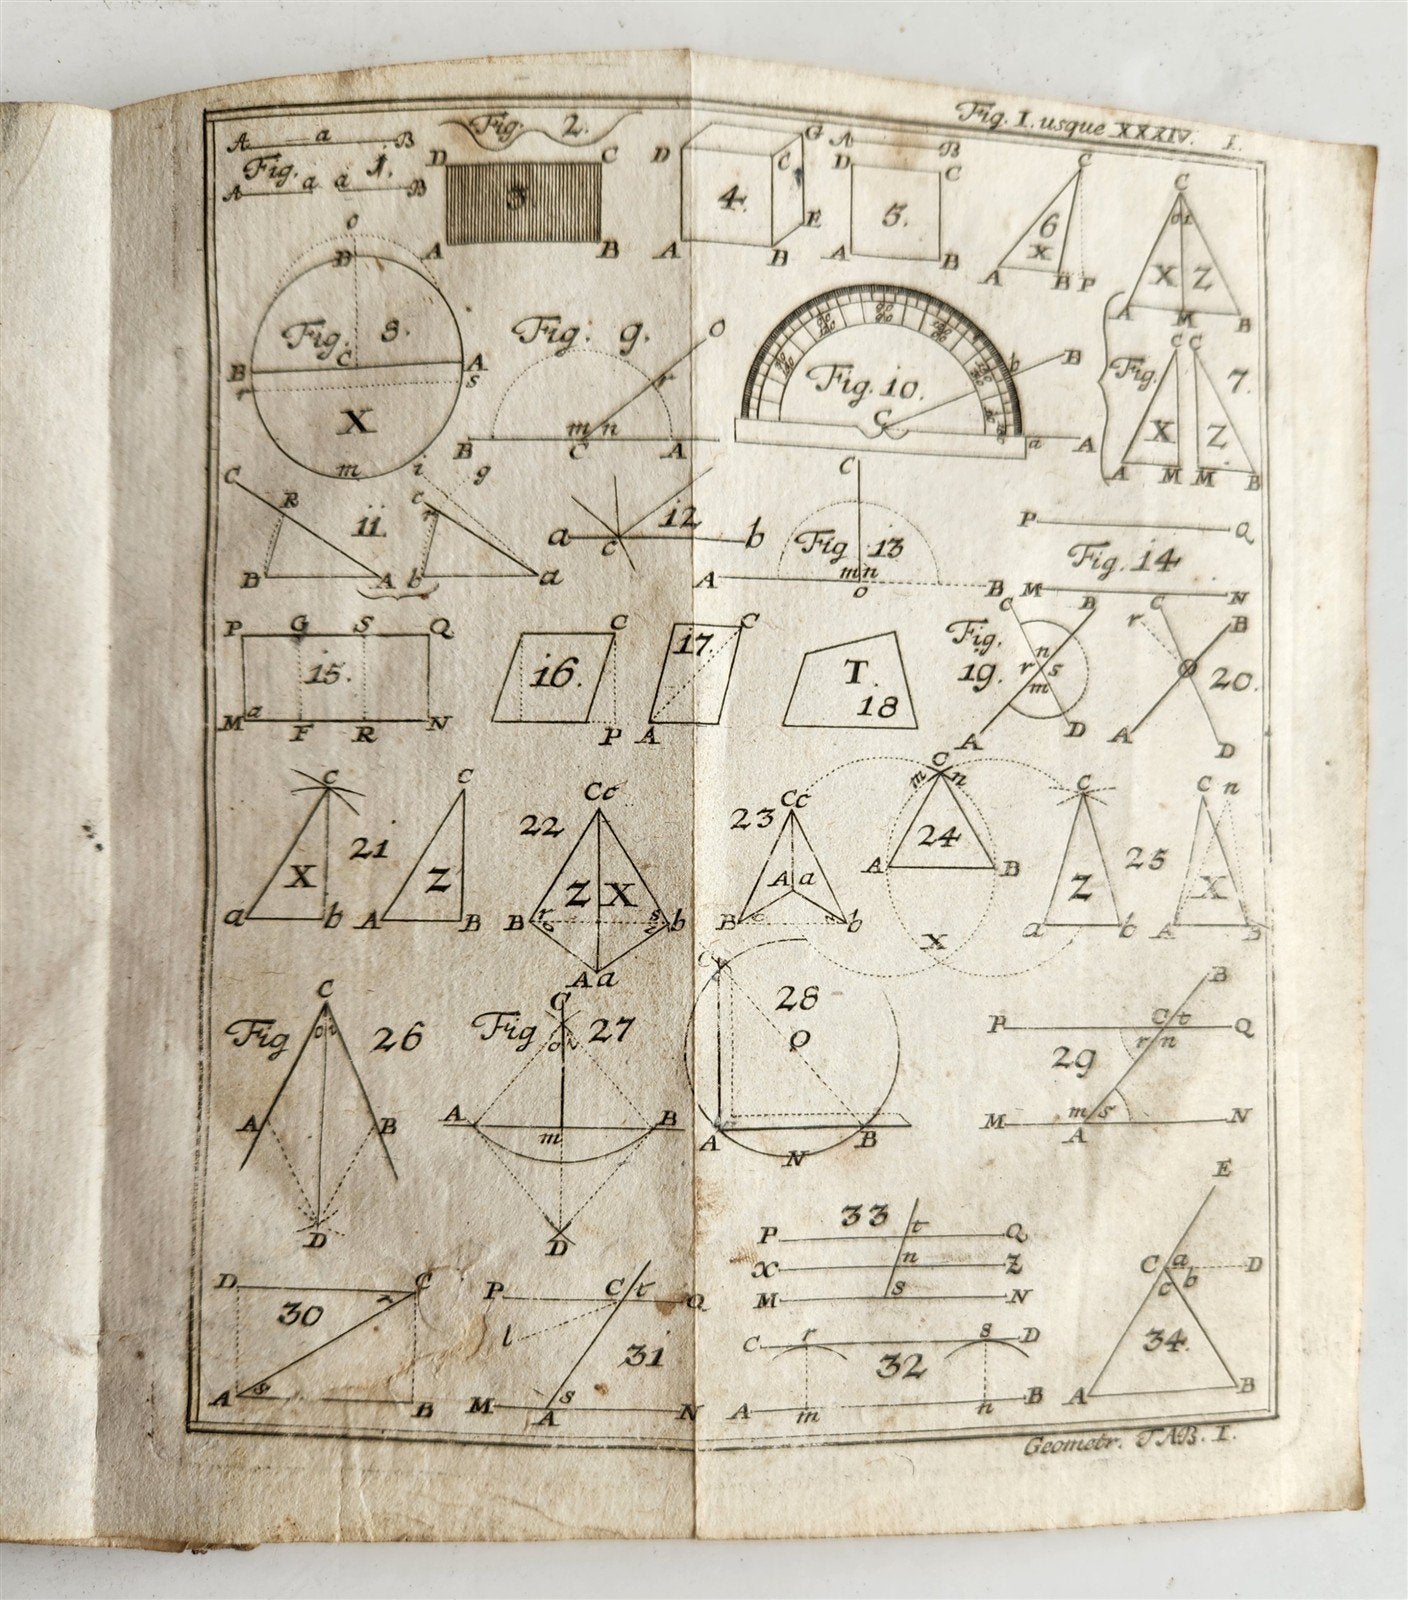 Fig. I. usque XXXIV. I.
A a B
Fig. 1.
A a a B
Fig. 2.
D C
3.
A B
D G C
4.
A B E
A B
D C
5.
A B
C
6
X
A B P
C
o i
X Z
A M B
C C
Fig. 7.
X Z
A M M B
o
D
Fig. 8.
C
B A
r s
X
m
Fig. 9.
o
r
m n
B C A
Fig. 10.
C
b B
a A
C R
11
B A
i g
c r
b a
12
a c b
C
Fig 13
m n
A o B
P Q
Fig. 14
M N
P G S Q
15.
a
M F R N
C
16.
P
17.
C
A
T.
18
Fig.
19.
C B
n
r s
m
A D
r C B
20.
A D
C
21
X
a b
C
Z
A B
22
Cc
Z X
B r s b
A a
23
Cc
A a
B b
C
m n
24
A B
X
C
25
Z
a b
C n
X
A B
Fig 26
C
o i
A B
D
Fig 27
C
o i
A B
m
D
C
28
O
A B
N
B
P C t Q
29
r n
m s
M A N
D C
30
A B
P C t Q
l
31
s
M A N
33
P t Q
X n Z
M s N
C r s D
32
A m n B
E
C a D
c b
34.
A B
Geometr. TAB. I.